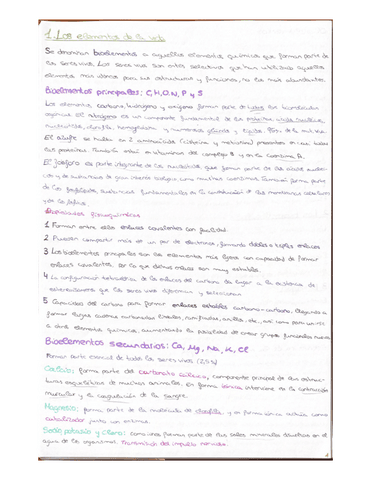 1. Los elementos de la vida
Se denominan bioelementos a aquellos elementos químicos que forman parte de
los seres vivos. Los seres vivos son entes selectivos que han utilizado aquellos
elementos más idóneos para sus estructuras y funciones, no los más abundantes.
Bioelementos principales: C, H, O, N, P y S
Los elementos carbono, hidrógeno y oxígeno forman parte de todas las biomoléculas
orgánicas. El nitrógeno es un componente fundamental de las proteínas, ácidos nucleicos,
nucleótidos, clorofila, hemoglobina y numerosos glúcidos y lípidos.
El azufre se halla en 2 aminoácidos (cisteína y metionina) presentes en casi todas
las proteínas. También está en vitaminas del complejo B y en la coenzima A.
El fósforo es parte integrante de los nucleótidos que forman parte de los ácidos nuclei-
cos y de sustancias de gran interés biológico como muchas coenzimas. También forma parte
de los fosfolípidos, sustancias fundamentales de la constitución de las membranas celulares
Propiedades fisicoquímicas
1 Forman entre ellos enlaces covalentes con facilidad.
2 Pueden compartir más de un par de electrones, formando dobles o triples enlaces
3 Los bioelementos principales son los elementos más ligeros con capacidad de formar
enlaces covalentes, por lo que dichos enlaces son muy estables.
4 La configuración tetraédrica de los enlaces del carbono da lugar a la existencia de
estereoisómeros que los seres vivos diferencian y seleccionan
5 Capacidad del carbono para formar enlaces estables carbono-carbono, llegando a
formar largas cadenas carbonadas lineales, ramificadas, anillos, etc., así como para unirse
a otros elementos químicos, aumentando la posibilidad de crear grupos funcionales nuevos
Bioelementos secundarios: Ca, Mg, Na, K, Cl
Forman parte esencial de todos los seres vivos (2,5%)
Calcio: forma parte del carbonato cálcico, componente principal de las estruc-
turas esqueléticas de muchos animales. En forma iónica interviene en la contracción
muscular y la coagulación de la sangre.
Magnesio: forma parte de la molécula de clorofila, y en forma iónica actúa como
catalizador junto un enzimas.
Sodio, potasio y cloro: como iones forman parte de las sales minerales disueltas en el
agua de los organismos. Transmisión del impulso nervioso.